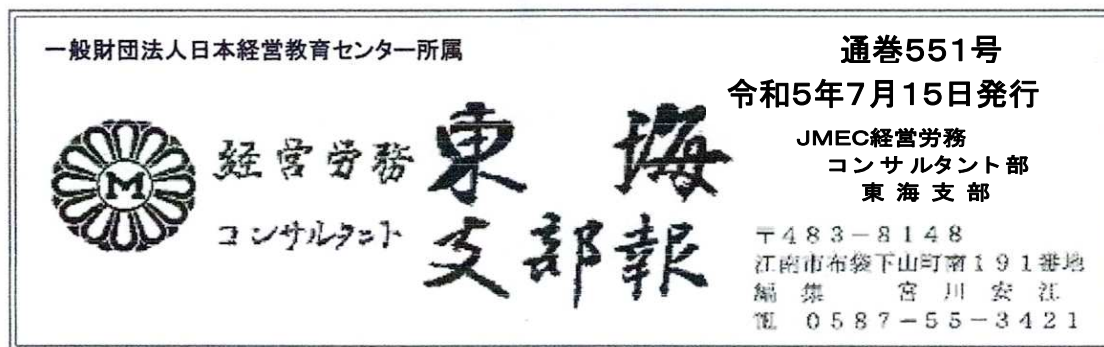 一般財団法人日本経営教育センター所属
通巻551号
令和5年7月15日発行
M
経営労務
コンサルタント
東海
支部報
JMEC経営労務
コンサルタント部
東海支部
〒483-8148
江南市布袋下山町南191番地
編集 宮川安江
電 0587-55-3421